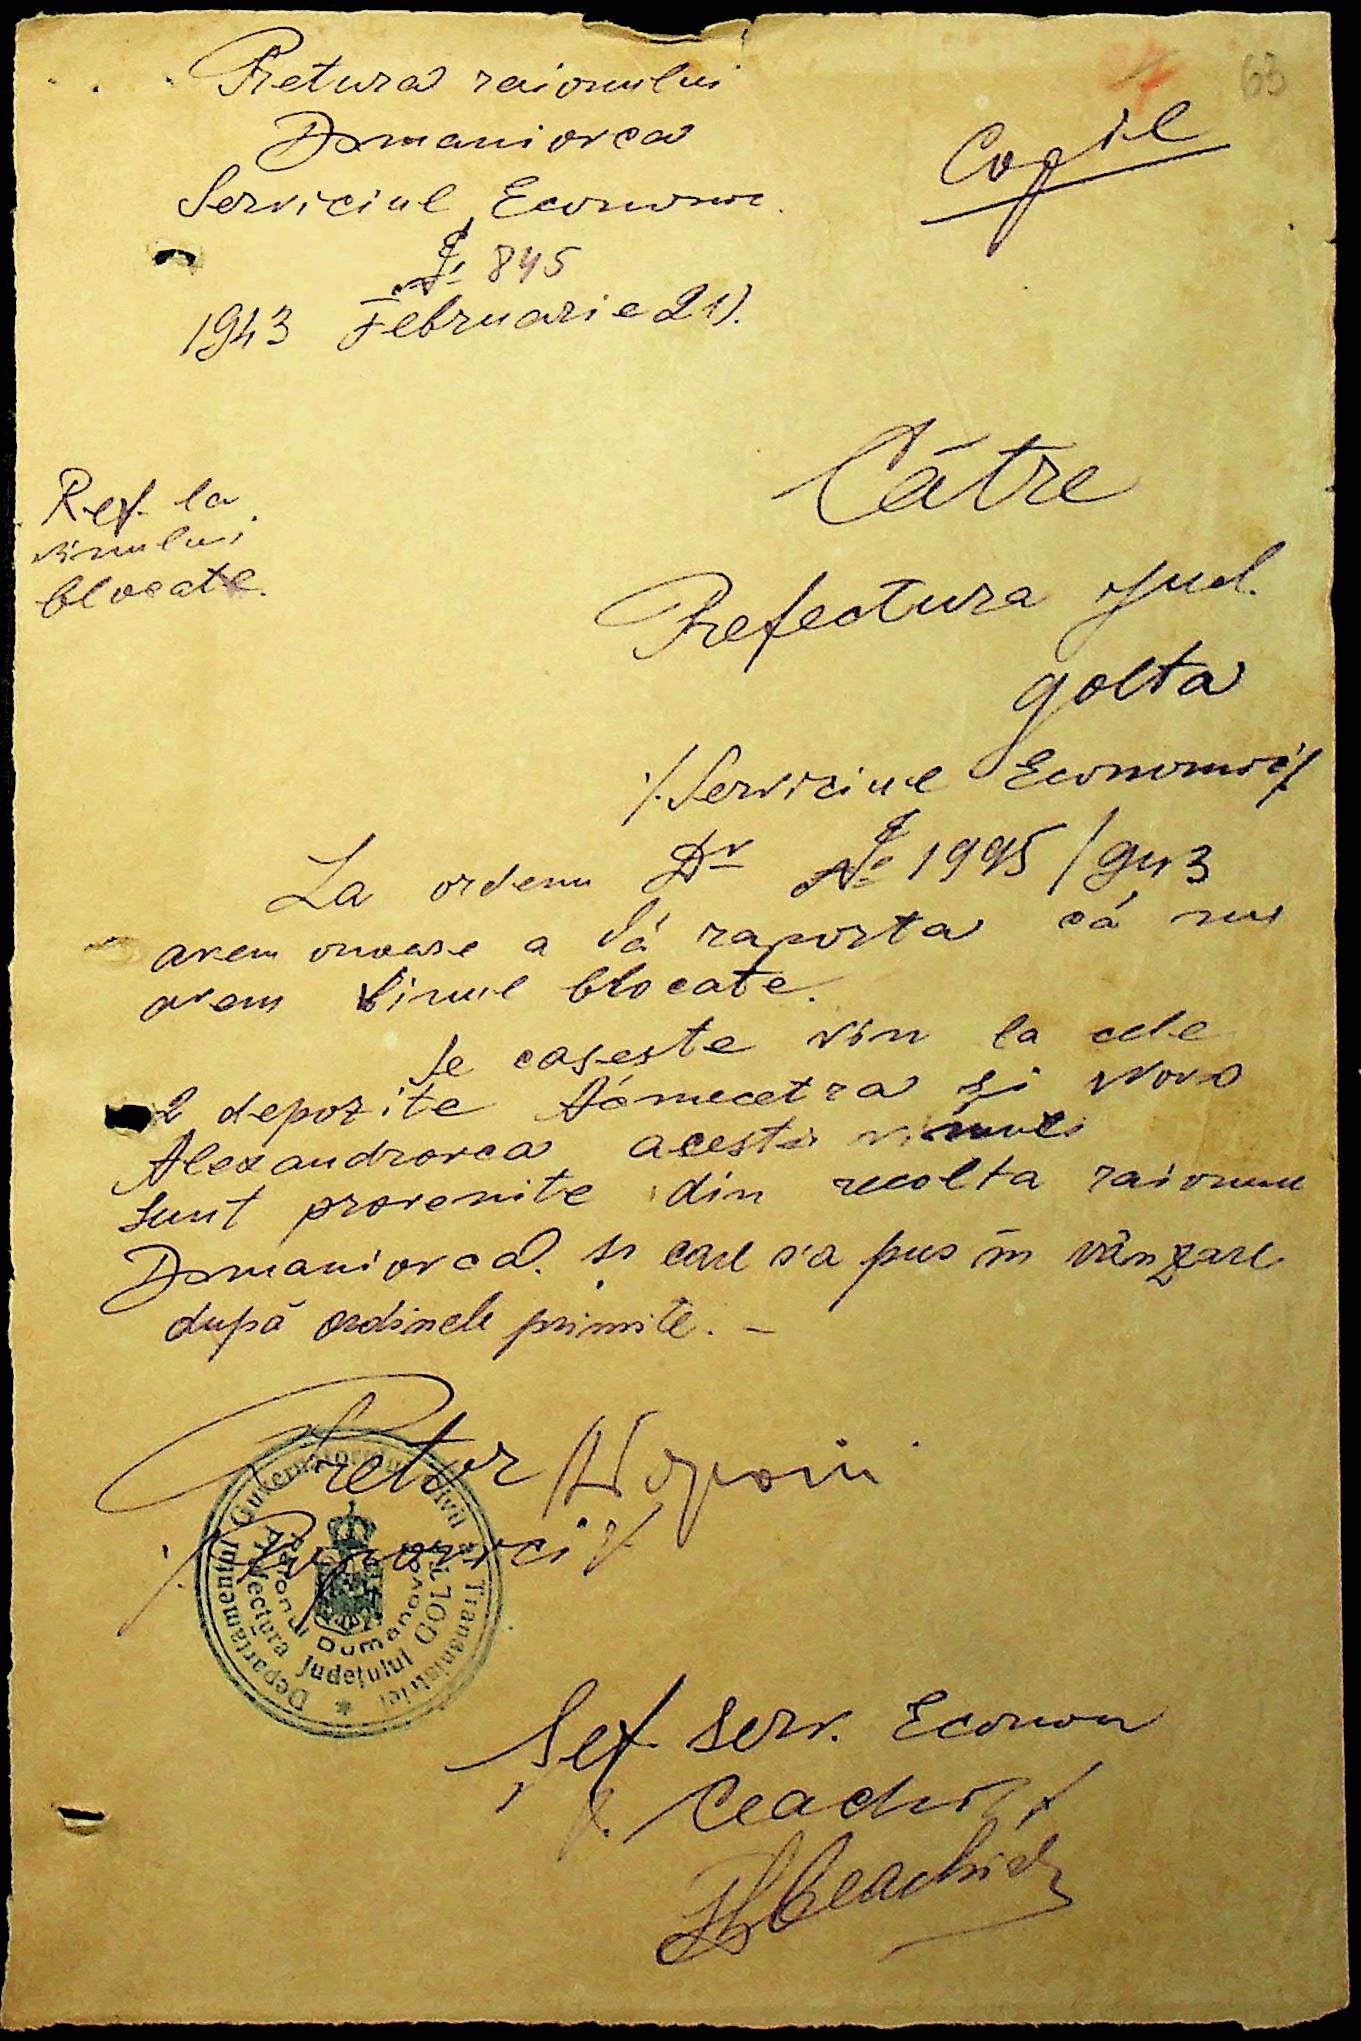 63
Copie
Pretura raionului
Domaniovca
Serviciul Econom.
№ 845
1943 Februarie 21).
Către
Ref. la
vinului
blocate.
Prefectura Jud.
Golta
/. Serviciul Economic /.
La ordenu Dv № 1995/943
avem onoare a Vă raporta că nu
avem vinul blocate.
Se casește vin la cele
2 depozite și Novo
Alexandrovca acestă vinuri
sunt provenite din recolta raionului
Domaniovca. și care s'a pus în vânzare
după ordinele primite. -
Pretor
Departamentul Guvernatorului Civil al Transnistriei *
Prefectura Județului GOLTA
Raionul Dumanovca
Șef. Serv. Econom